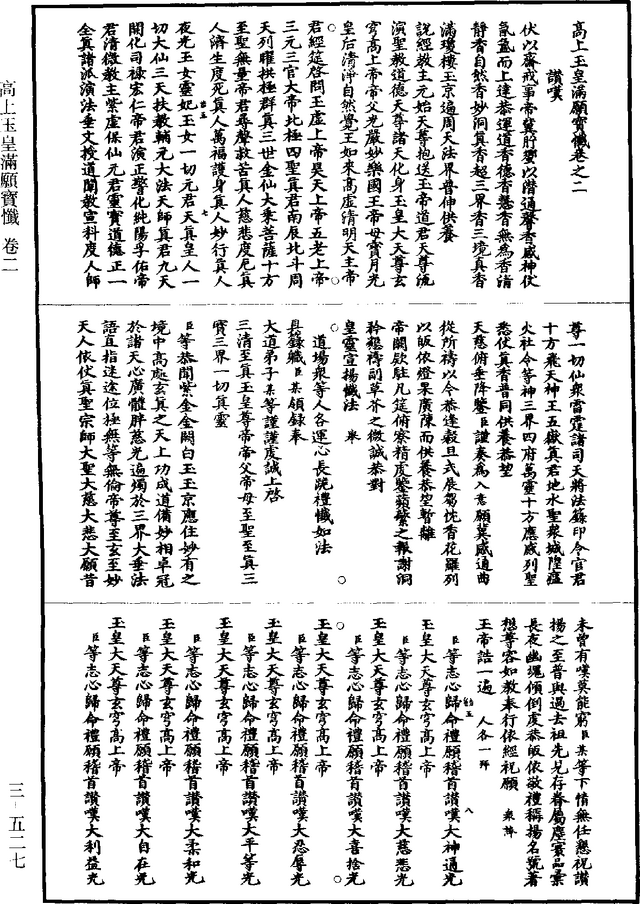 高上玉皇滿願寶懺卷之二
讚嘆
伏以齋戒事帝冀肸蠁以潛通馨香感神伏
氤氳而上達恭運道香德香慧香無為香清
靜香自然香妙洞真香超三界香三境真香
滿瓊樓玉京遍周大法界普伸供養
說經教主元始天尊抱送玉帝道君天尊流
演聖教道德天尊諸天化身玉皇大天尊玄
穹高上帝帝父光嚴妙樂國王帝母寶月光
皇后清淨自然覺王如來高虛清明天主帝
君經筵啓問玉虛上帝昊天上帝五老上帝
三元三官大帝北極四聖真君南辰北斗周
天列曜拱極群真三世金仙大乘菩薩十方
至聖無量帝君尋聲救苦真人慈悲度厄真
人濟生度死真人萬福護身真人妙行真人
夜光玉女靈妃玉女一切元君天真皇人一
切大仙三天扶教輔元大法天師真君九天
開化司祿宏仁帝君演正警化純陽孚佑帝
君清微教主紫虛保仙元君靈寶道德正一
全真諸派演法垂文授道闡教宣科度人師
尊一切仙眾雷霆諸司天將法籙印令官君
十方飛天神王五嶽真君地水聖眾城隍瘟
火社令等神三界四府萬靈十方應感列聖
悉仗真香普同供養恭望
天慈俯垂降鑒臣謹奏為入意願冀感通曲
從所禱以今恭逢穀旦式展芻忱香花羅列
以皈依燈果廣陳而供養恭望暫離
帝闕欻駐凡筵俯察精虔鑒蘋蘩之報謝洞
矜懇禱副草芥之微誠恭對
皇靈宣揚懺法
道場眾等人各運心長跪禮懺如法
具錄職臣某領錄奉
大道弟子某等謹謹虔誠上啓
三清至真玉皇尊帝帝父帝母至聖至真三
寶三界一切真靈
臣等恭聞紫金金闕白玉玉京應住妙有之
境中高處玄真之天上功成道備妙相卓冠
於諸天心廣體胖慈光遍燭於三界大垂法
語直指迷途位極無等無倫帝尊至玄至妙
天人依仗真聖宗師大聖大慈大悲大願昔
未曾有嘆莫能窮臣某等下情無任懇祝讚
揚之至普與過去祖先見存眷屬塵寰品彙
長夜幽魂傾倒虔恭皈依敬禮稱揚名號著
想尊容如教奉行依經祝願
玉帝誥一遍 人各一拜
臣等志心歸命禮願稽首讚嘆大神通光
玉皇大天尊玄穹高上帝
臣等志心歸命禮願稽首讚嘆大慈悲光
玉皇大天尊玄穹高上帝
臣等志心歸命禮願稽首讚嘆大喜捨光
玉皇大天尊玄穹高上帝
臣等志心歸命禮願稽首讚嘆大忍辱光
玉皇大天尊玄穹高上帝
臣等志心歸命禮願稽首讚嘆大平等光
玉皇大天尊玄穹高上帝
臣等志心歸命禮願稽首讚嘆大柔和光
玉皇大天尊玄穹高上帝
臣等志心歸命禮願稽首讚嘆大自在光
玉皇大天尊玄穹高上帝
臣等志心歸命禮願稽首讚嘆大利益光
高上玉皇滿願寶懺 卷二
三-五二七